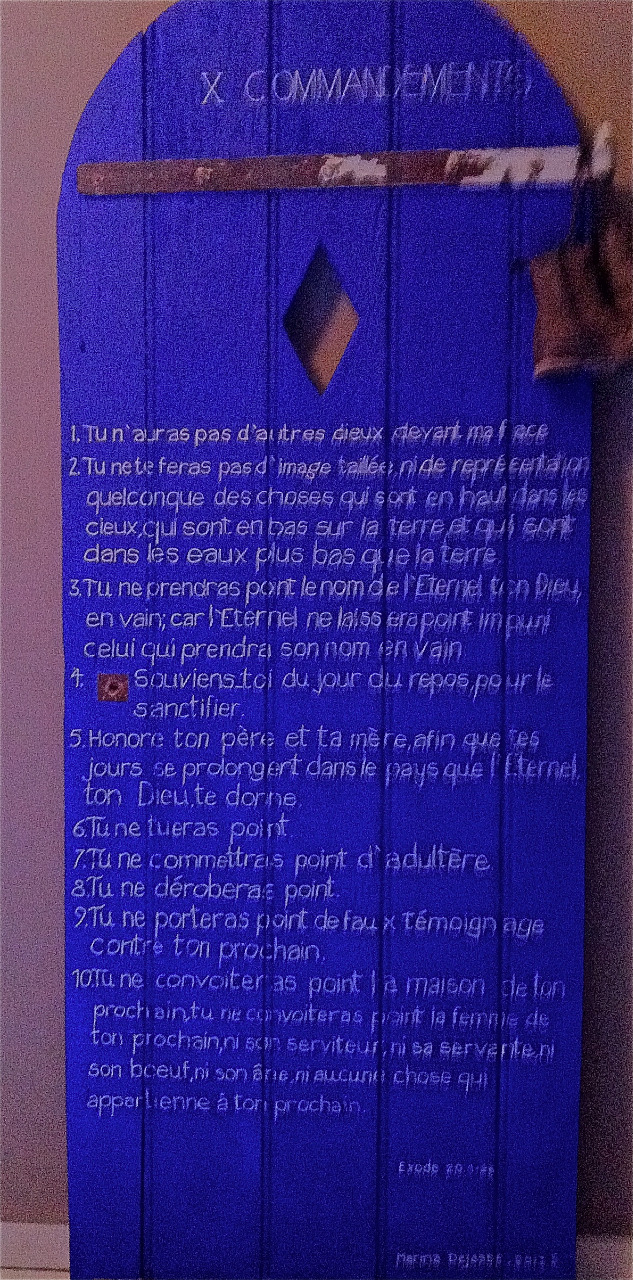 X COMMANDEMENTS
1. Tu n'auras pas d'autres dieux devant ma face
2. Tu ne te feras pas d'image taillée, ni de représentation
quelconque des choses qui sont en haut dans les
cieux, qui sont en bas sur la terre, et qui sont
dans les eaux plus bas que la terre.
3. Tu ne prendras point le nom de l'Eternel, ton Dieu,
en vain; car l'Eternel ne laissera point impuni
celui qui prendra son nom en vain
4. Souviens-toi du jour du repos, pour le
sanctifier.
5. Honore ton père et ta mère, afin que tes
jours se prolongent dans le pays que l'Eternel,
ton Dieu, te donne.
6. Tu ne tueras point.
7. Tu ne commettras point d'adultère.
8. Tu ne déroberas point.
9. Tu ne porteras point de faux témoignage
contre ton prochain.
10. Tu ne convoiteras point la maison de ton
prochain, tu ne convoiteras point la femme de
ton prochain, ni son serviteur, ni sa servante, ni
son bœuf, ni son âne, ni aucune chose qui
appartienne à ton prochain.
Exode